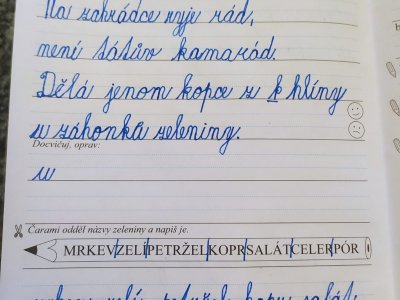 Na zahrádce ryje rád,
není tátův kamarád.
Dělá jenom kopce z k hlíny
u záhonka zeleniny.
Docvičuj, oprav:
u
Čarami odděl názvy zeleniny a napiš je.
MRKEV|ZELÍ|PETRŽEL|KOPR|SALÁT|CELER|PÓR